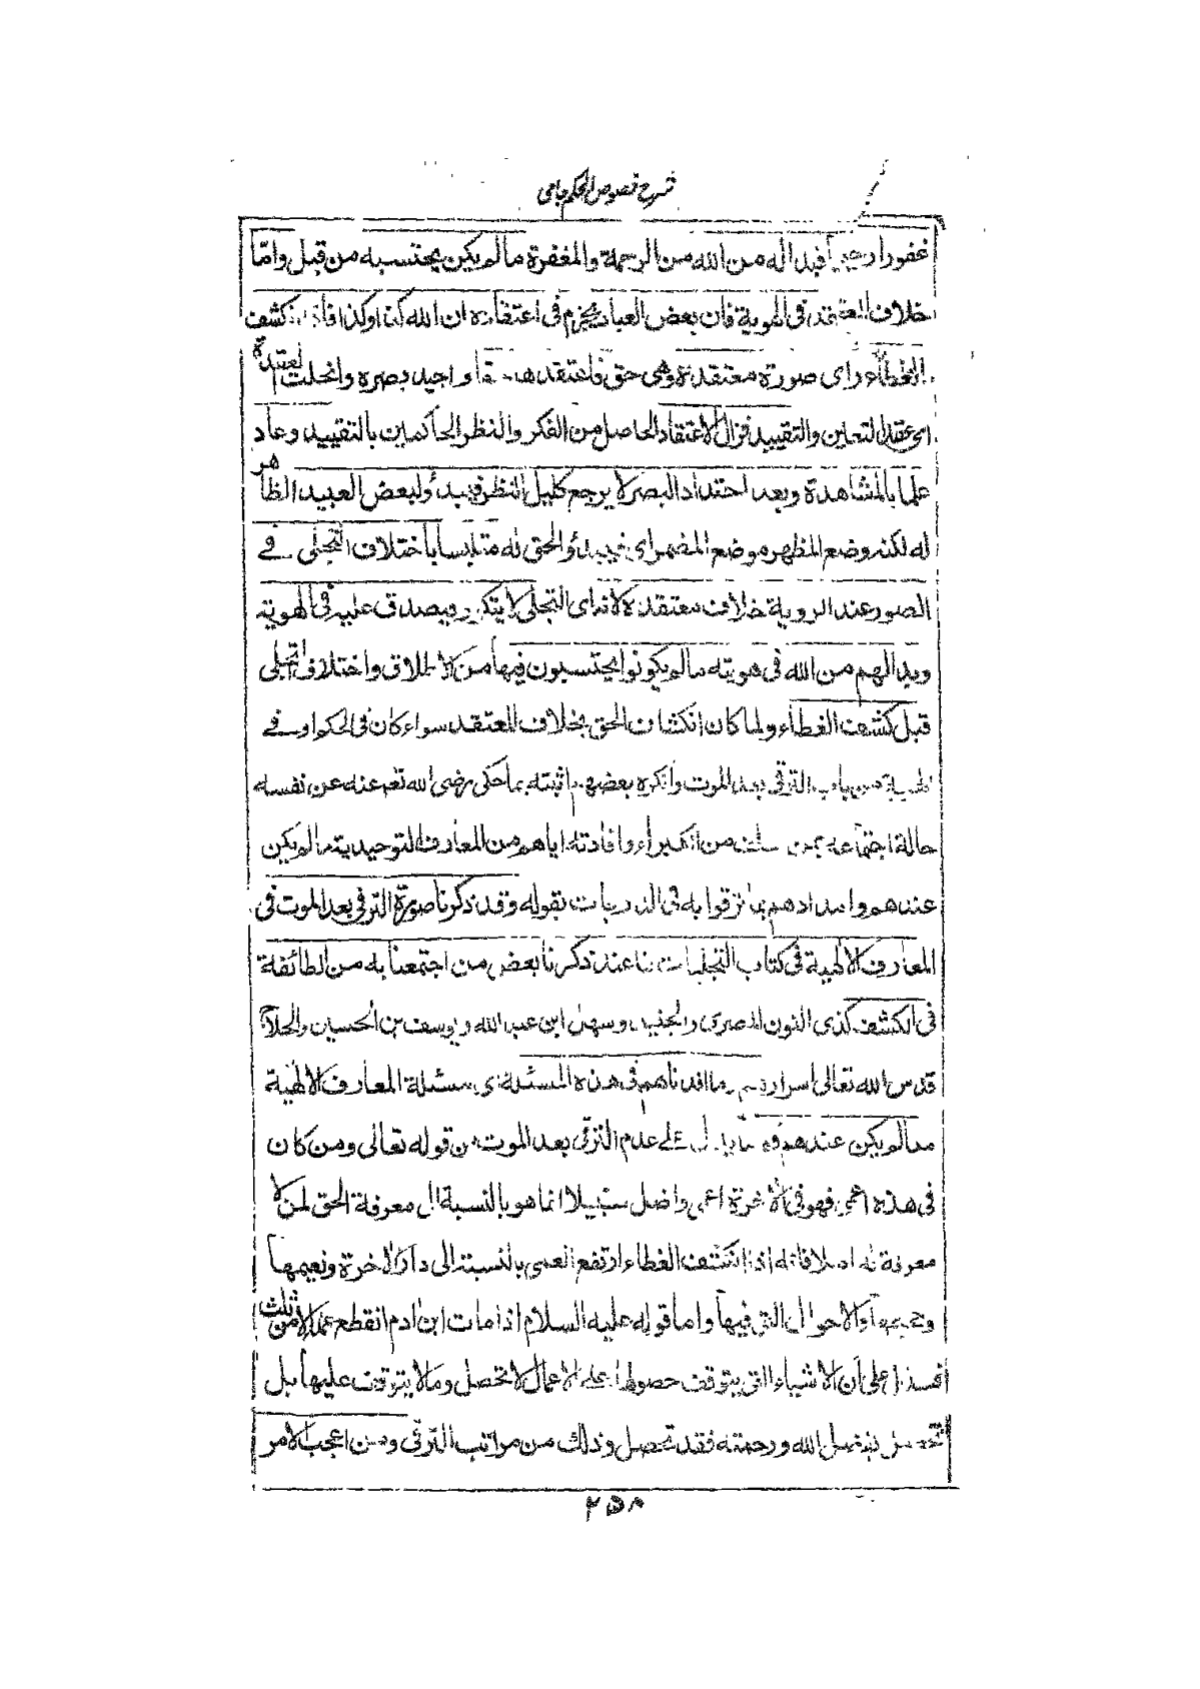 شرح فصوص الحكم جامى
غفورا رحيما فبدا له من الله من الرحمة والمغفرة مالم يكن يحتسبه من قبل وامّا
خلاف المعتقد فى الهوية فان بعض العباد يجزم فى اعتقاده ان الله كذا وكذا فاذا انكشف
الغطاء راى صورة معتقده وهى حق فاعتقدها واحيد بصره وانحلت العقدة
اى عقد التعين والتقييد فزال الاعتقاد الحاصل من الفكر والنظر الحاكمين بالتقييد وعاد
علما بالمشاهدة وبعد احتداد البصر لا يرجع كليل النظر فيبدؤ لبعض العبيد الظاهر
له لكنه وضع المظهر موضع المضمر اى فيبدؤ الحق له متلبسا باختلاف التجلى فے
الصور عند الروية خلاف معتقده لانه اى التجلى لا يتكرر فيصدق عليه فى الهوية
وبدا لهم من الله فى هويته مالم يكونوا يحتسبون فيها من الاطلاق واختلاف التجلى
قبل كشف الغطاء ولما كان انكشاف الحق بخلاف المعتقد سواء كان فى الحكم او فے
الهوية من باب الترقى بعد الموت وانكره بعضهم اثبته بما حكى رضى الله تعم عنه عن نفسه
حالة اجتماعه بمن سلف من الكبراء وافادته اياهم من المعارف التوحيدية مالم يكن
عندهم وامدادهم بما ترقوا به فى الدرجات بقوله وقد ذكرنا صورة الترقى بعد الموت فى
المعارف الالهية فى كتاب التجليات لنا عند ذكرنا بعض من اجتمعنا به من الطائفة
فى الكشف كذى النون المصرى والجنيد وسهل ابن عبد الله ويوسف بن الحسين والحلاج
قدس الله تعالى اسرارهم وما افدناهم فى هذه المسئلة اى مسئلة المعارف الالهية
مما لم يكن عندهم على عدم الترقى بعد الموت من قوله تعالى ومن كان
فى هذه اعمى فهو فى الاخرة اعمى واضل سبيلا انما هو بالنسبة الى معرفة الحق لمن لا
معرفة له اصلا فانه اذا انكشف الغطاء ارتفع العمى بالنسبة الى دار الاخرة ونعيمها
وجحيمها والاحوال التى فيها واما قوله عليه السلام اذا مات ابن ادم انقطع عمله الا من ثلث
على ان الاشياء التى يتوقف حصولها على الاعمال لا تحصل ومالا يتوقف عليها بل
تحصل بفضل الله ورحمته فقد تحصل وذلك من مراتب الترقى ومن اعجب الامر
۲۵۸